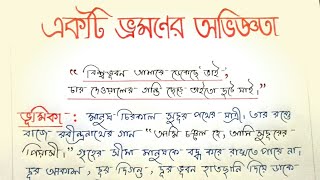 একটি ভ্রমণের অভিজ্ঞতা
"বিশ্বভুবন আমারে ডেকেছে ভাই,
চার দেওয়ালের গণ্ডি ছেড়ে তাইতো ছুটে যাই।"
ভূমিকা :- মানুষ চিরকাল সুদূর পথের যাত্রী। তার রক্তে
বাজে রবীন্দ্রনাথের গান "আমি চঞ্চল হে, আমি সুদূরের
পিয়াসী।" গৃহের সীমা মানুষকে বদ্ধ করে রাখতে পারে না,
দূর আকাশ, দূর দিগন্ত, দূর ভুবন হাতছানি দিয়ে ডাকে